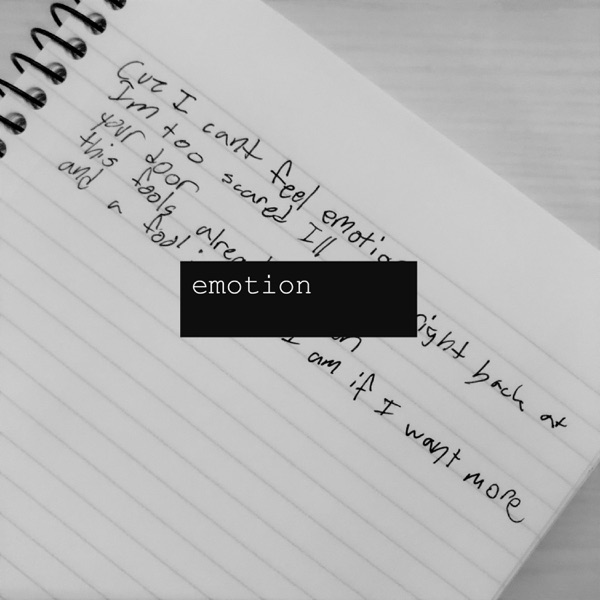 Cuz I cant feel emotion
Im too scared Ill right back at
your door
this fools
and a fool I am if I want more
emotion